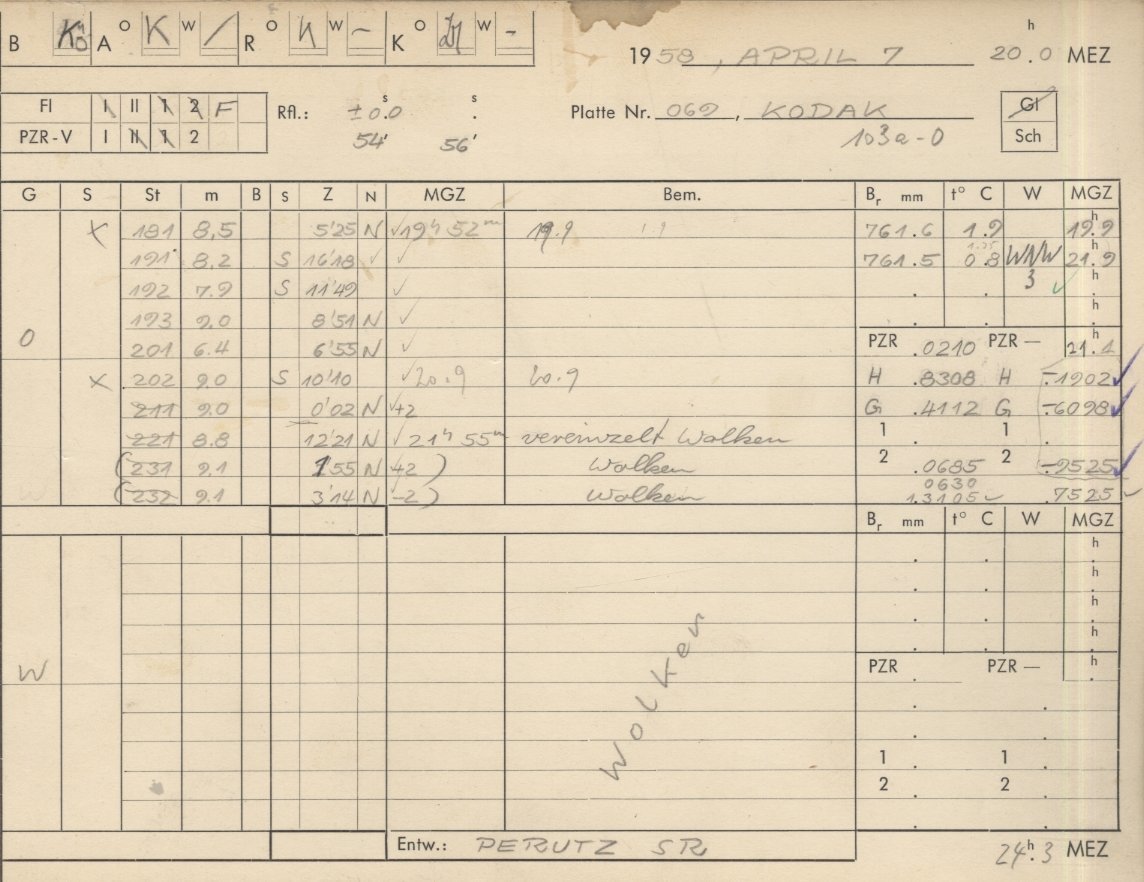 B Kö A O K W / R O W – K O W -
1958, APRIL 7 20.0 h MEZ
Fl I II 1 2 F
PZR-V I II 1 2
Rfl.: ±0.0 s . s
54' 56'
Platte Nr. 069, KODAK
103a-O
Gl
Sch
G S St m B S Z N MGZ Bem.
X 181 8,5 5'25 N ✓19h 52m 19.9
191 8.2 S 16'18 ✓ ✓
192 7.9 S 11'49 ✓
193 9.0 8'51 N ✓
O
201 6.4 6'55 N ✓
X 202 9.0 S 10'10 ✓20.9 20.9
211 9.0 0'02 N +2
221 8.8 12'21 N ✓21h 55m vereinzelt Wolken
(231 9.1 1'55 N +2) Wolken
(232 9.1 3'14 N -2) Wolken
Br mm t° C W MGZ
761.6 1.9 19.9 h
1.35
761.5 0.8 WNW 21.9 h
3 ✓ . h
. . . h
PZR .0210 PZR — 21.1 h
H .8308 H -.1902 ✓
G .4112 G -.6098 ✓
1 . 1 .
2 .0685 2 -.9525 ✓
0630
1.3105 ✓ .7525 ✓
Br mm t° C W MGZ
. . h
. . . h
. . . h
. . . h
PZR . PZR — . h
W
Wolken
1 . 1 .
2 . 2 .
Entw.: PERUTZ SR
24.3 h MEZ